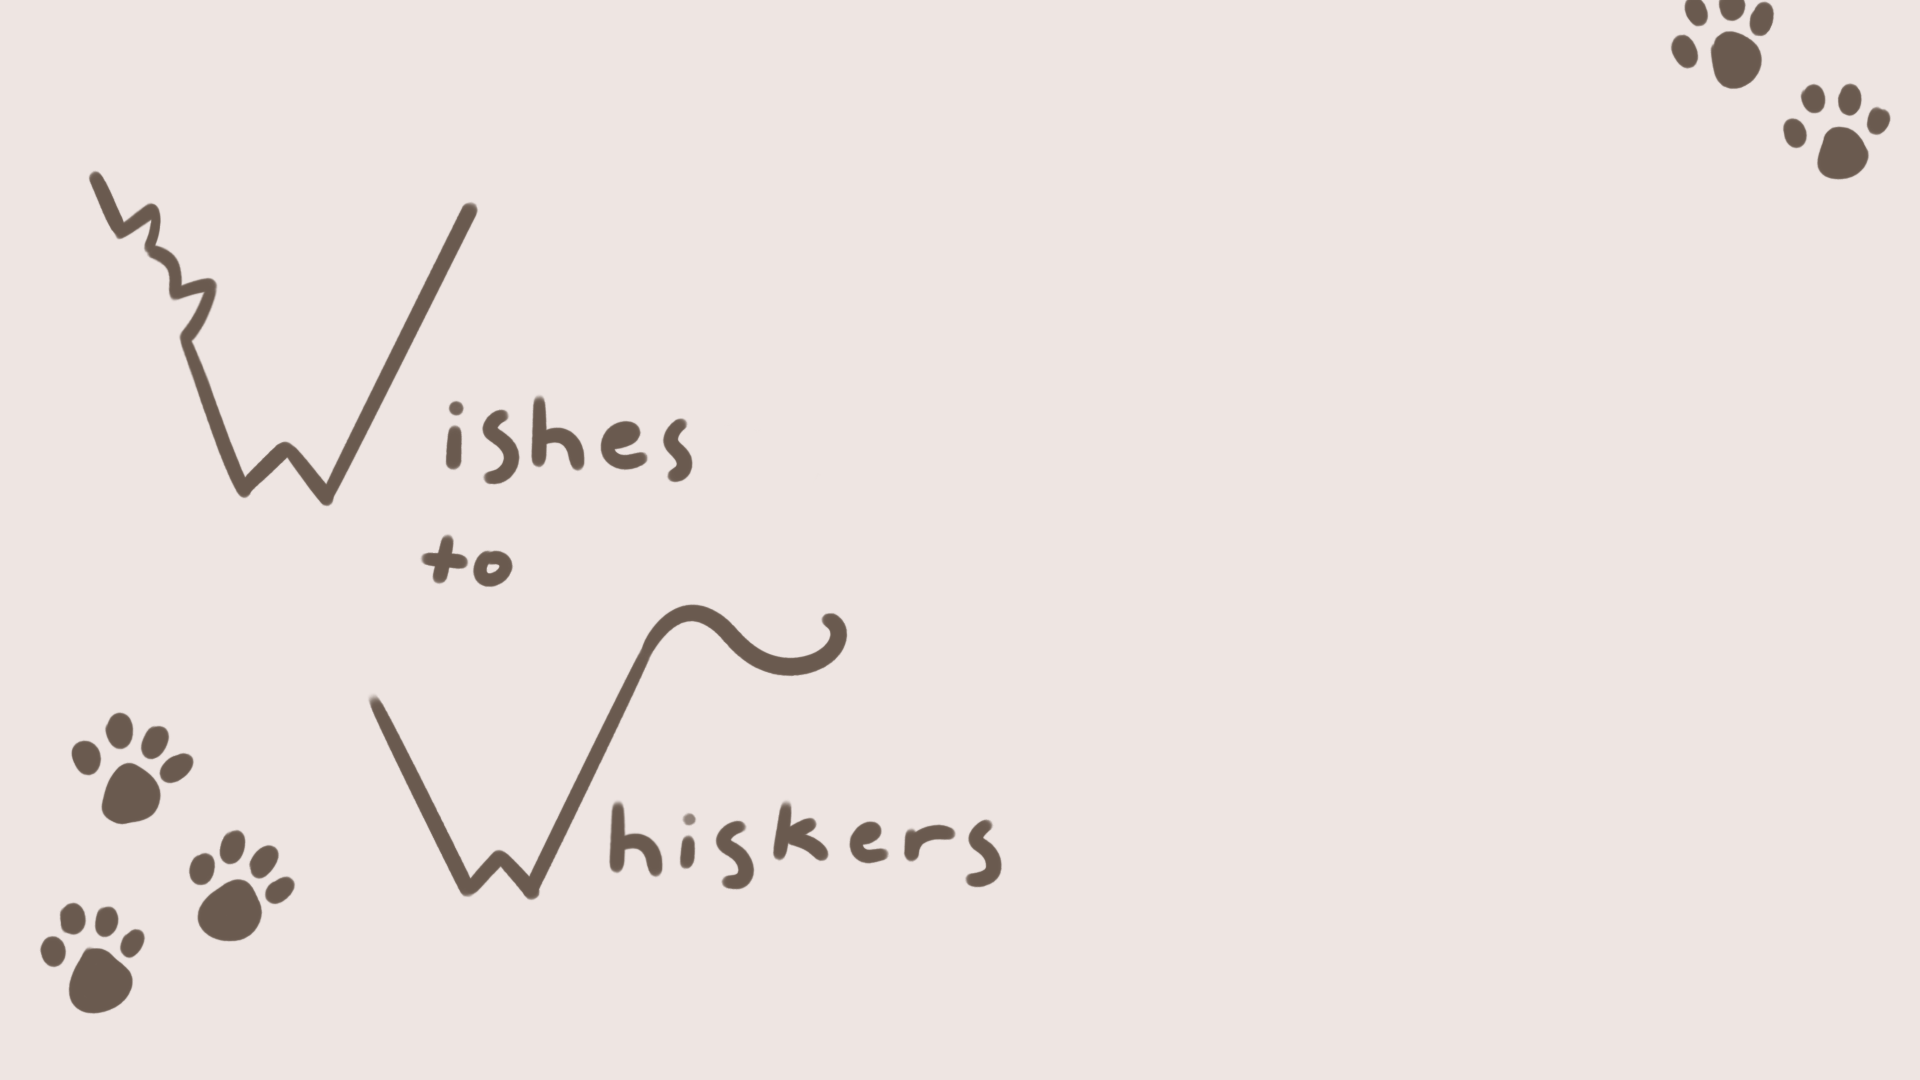 Wishes
to
Whiskers